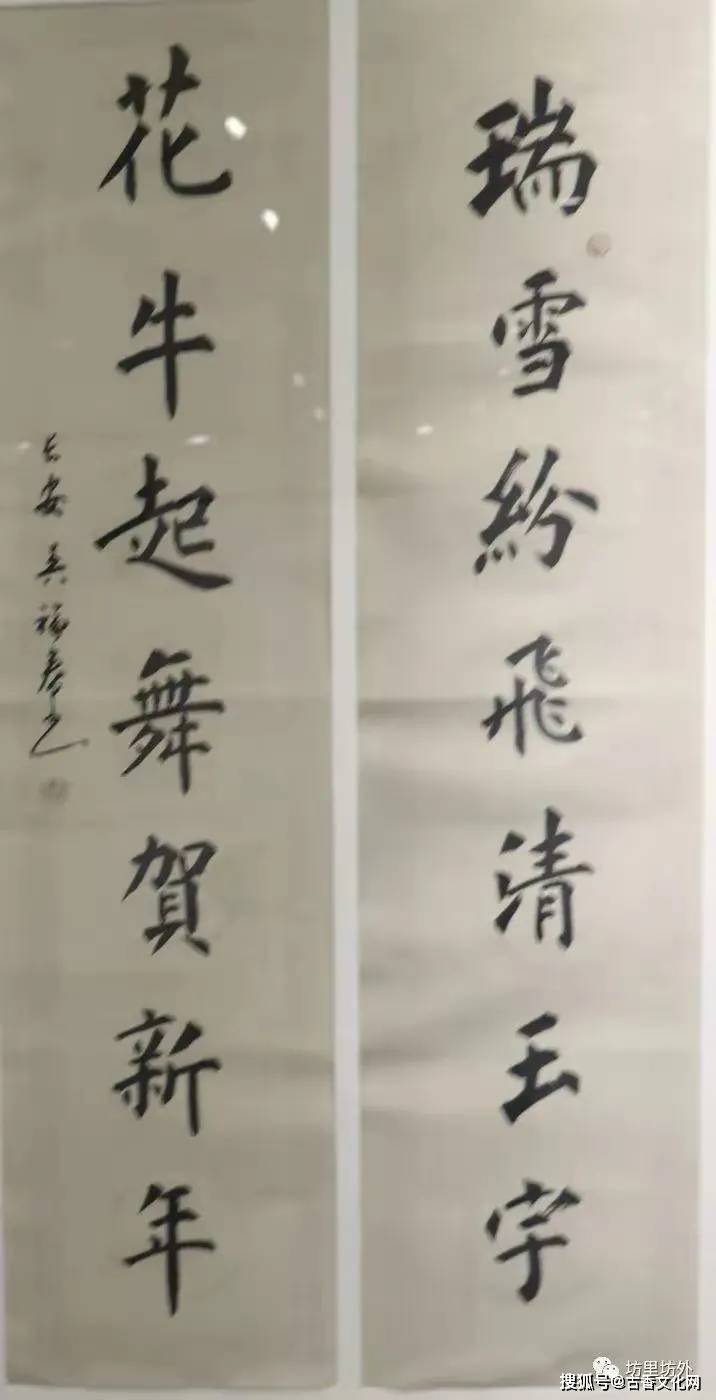 瑞雪紛飛清玉宇
花牛起舞賀新年
長安吴福春书
坊里坊外
搜狐号@古香文化网